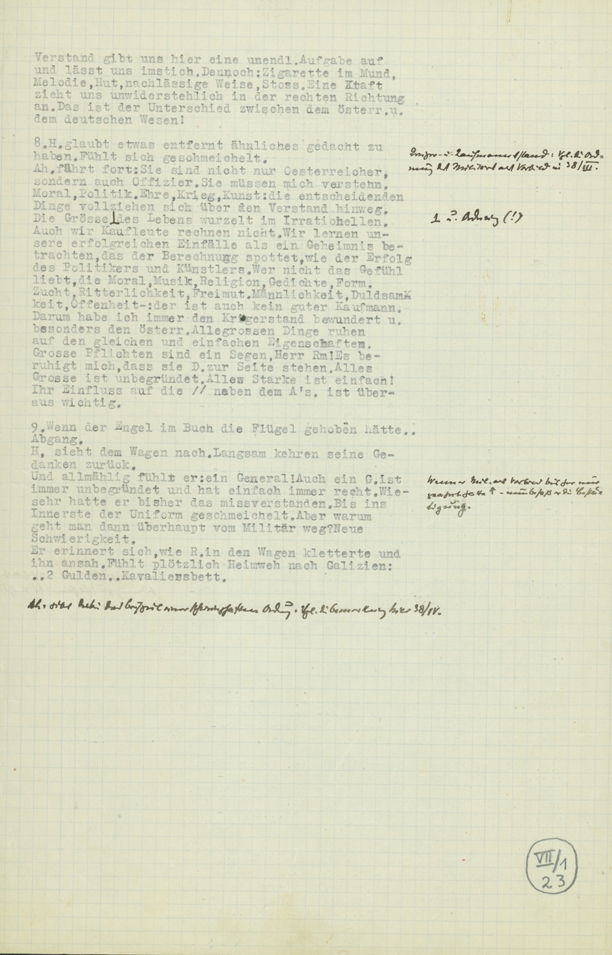 Verstand gibt uns hier eine unendl.Aufgabe auf
und lässt uns imstich.Dennoch:Zigarette im Mund,
Melodie,Hut,nachlässige Weise,Stoss.Eine Kraft
zieht uns unwiderstehlich in der rechten Richtung
an.Das ist der Unterschied zwischen dem österr.u.
dem deutschen Wesen!
8.H.glaubt etwas entfernt ähnliches gedacht zu
haben.Fühlt sich geschmeichelt.
Ah.fährt fort:Sie sind nicht nur Oesterreicher,
sondern auch Offizier.Sie müssen mich verstehn.
Moral,Politik.Ehre,Krieg,Kunst:die entscheidenden
Dinge vollziehen sich über den Verstand hinweg.
Die Grösse des Lebens wurzelt im Irratichellen.
Auch wir Kaufleute rechnen nicht.Wir lernen un-
sere erfolgreichen Einfälle als ein Geheimnis be-
trachten,das der Berechnung spottet,wie der Erfolg
des Politikers und Künstlers.Wer nicht das Gefühl
liebt,die Moral,Musik,Religion,Gedichte,Form.
Zucht,Ritterlichkeit,Freimut.Männlichkeit,Duldsam
keit,Offenheit-:der ist auch kein guter Kaufmann.
Darum habe ich immer den Kriegerstand bewundert u.
besonders den österr.Allegrossen Dinge ruhen
auf den gleichen und einfachen Eigenschaften.
Grosse Pflichten sind ein Segen,Herr Rm!Es be-
ruhigt mich,dass sie D.zur Seite stehen.Alles
Grosse ist unbegründet.Alles Starke ist einfach!
Ihr Einfluss auf die // neben dem A's. ist über-
aus wichtig.
9.Wenn der Engel im Buch die Flügel gehoben hätte..
Abgang.
H. sieht dem Wagen nach.Langsam kehren seine Ge-
danken zurück.
Und allmählig fühlt er:ein General!Auch ein G.ist
immer unbegründet und hat einfach immer recht.Wie-
sehr hatte er bisher das missverstanden.Bis ins
Innerste der Uniform geschmeichelt.Aber warum
geht man dann überhaupt vom Militär weg?Neue
Schwierigkeit.
Er erinnert sich,wie R.in den Wagen kletterte und
ihn ansah.Fühlt plötzlich Heimweh nach Galizien:
..2 Gulden..Kavaliersbett.
VII/1
23